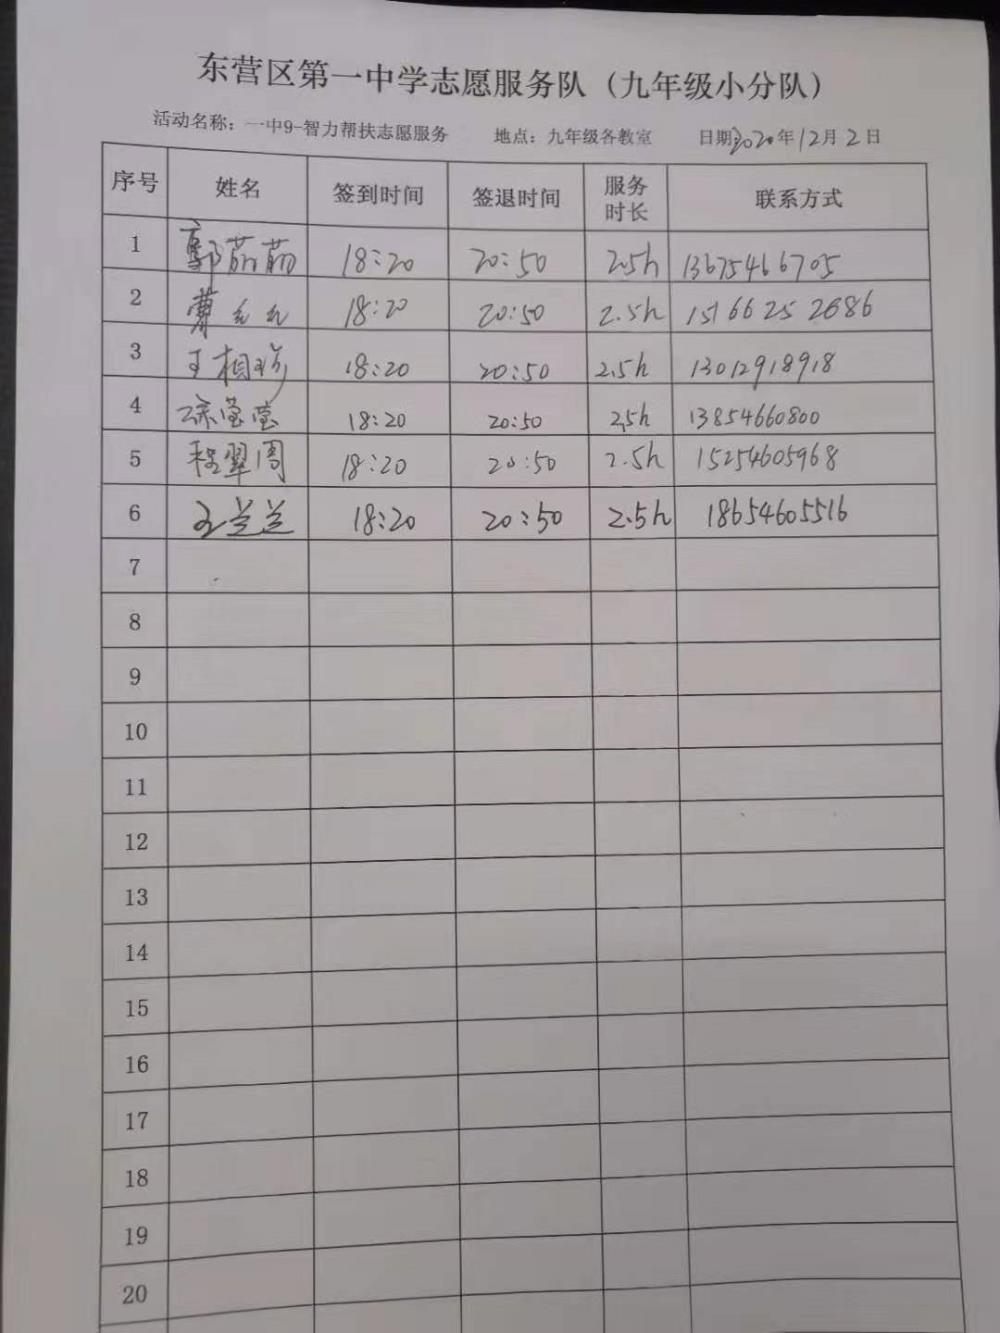 东营区第一中学志愿服务队（九年级小分队）
活动名称：一中9-智力帮扶志愿服务 地点：九年级各教室 日期2020年12月2日
序号 姓名 签到时间 签退时间 服务时长 联系方式
1 郭茹茹 18:20 20:50 2.5h 13675466705
2 18:20 20:50 2.5h 15166252686
3 王相珍 18:20 20:50 2.5h 13012918918
4 徐莹莹 18:20 20:50 2.5h 13854660800
5 程翠周 18:20 20:50 2.5h 15254605968
6 王兰兰 18:20 20:50 2.5h 18654605516
7
8
9
10
11
12
13
14
15
16
17
18
19
20